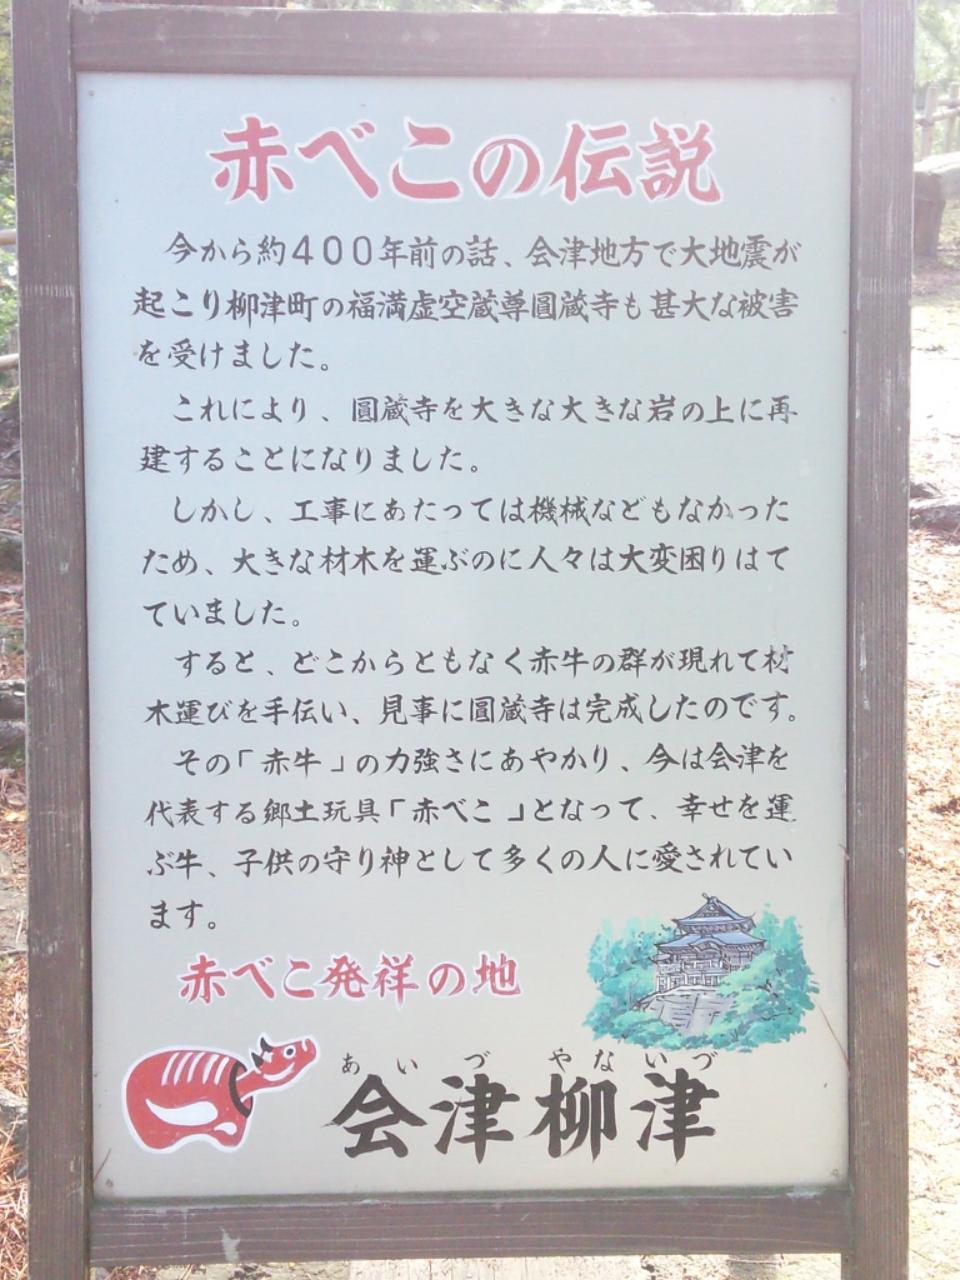 赤べこの伝説
今から約４００年前の話、会津地方で大地震が
起こり柳津町の福満虚空蔵尊圓蔵寺も甚大な被害
を受けました。
これにより、圓蔵寺を大きな大きな岩の上に再
建することになりました。
しかし、工事にあたっては機械などもなかった
ため、大きな材木を運ぶのに人々は大変困りはて
ていました。
すると、どこからともなく赤牛の群が現れて材
木運びを手伝い、見事に圓蔵寺は完成したのです。
その「赤牛」の力強さにあやかり、今は会津を
代表する郷土玩具「赤べこ」となって、幸せを運
ぶ牛、子供の守り神として多くの人に愛されてい
ます。
赤べこ発祥の地
あいづ やないづ
会津柳津